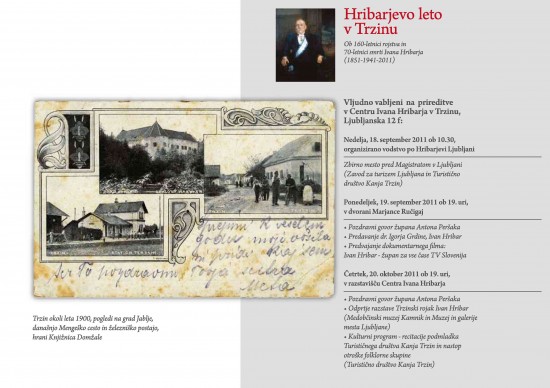 Hribarjevo leto
v Trzinu
Ob 160-letnici rojstva in
70-letnici smrti Ivana Hribarja
(1851-1941-2011)
Vljudno vabljeni na prireditve
v Centru Ivana Hribarja v Trzinu,
Ljubljanska 12 f:
Nedelja, 18. september 2011 ob 10.30,
organizirano vodstvo po Hribarjevi Ljubljani
Zbirno mesto pred Magistratom v Ljubljani
(Zavod za turizem Ljubljana in Turistično
društvo Kanja Trzin)
Ponedeljek, 19. september 2011 ob 19. uri,
v dvorani Marjance Ručigaj
• Pozdravni govor župana Antona Peršaka
• Predavanje dr. Igorja Grdine, Ivan Hribar
• Predvajanje dokumentarnega filma:
Ivan Hribar - župan za vse čase TV Slovenija
Četrtek, 20. oktober 2011 ob 19. uri,
v razstavišču Centra Ivana Hribarja
• Pozdravni govor župana Antona Peršaka
• Odprtje razstave Trzinski rojak Ivan Hribar
(Medobčinski muzej Kamnik in Muzej in galerije
mesta Ljubljane)
• Kulturni program - recitacije podmladka
Turističnega društva Kanja Trzin in nastop
otroške folklorne skupine
(Turistično društvo Kanja Trzin)
Trzin okoli leta 1900, pogledi na grad Jablje,
današnjo Mengeško cesto in železniško postajo,
hrani Knjižnica Domžale